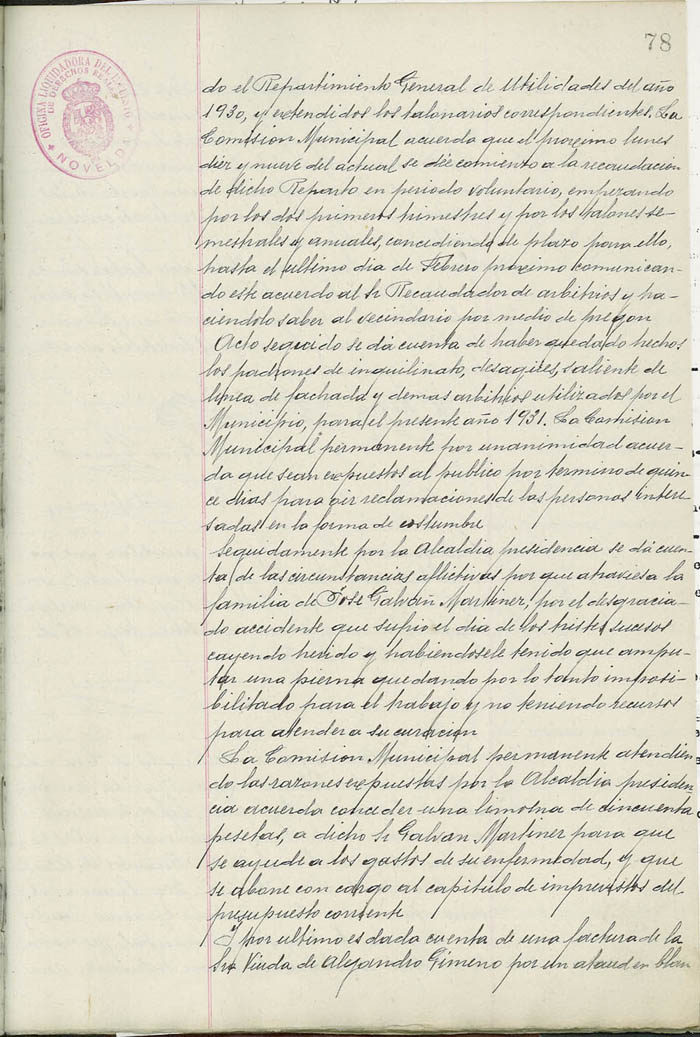 78
OFICINA LIQUIDADORA DEL IMPUESTO
DE DERECHOS REALES
NOVELDA
do el Repartimiento General de Utilidades del año
1930, y extendidos los talonarios correspondientes. La
Comision Municipal acuerda que el proximo lunes
diez y nueve del actual se dée comienzo a la recaudacion
de dicho Reparto en periodo voluntario, empezando
por los dos primeros trimestres y por los talones se-
mestrales y anuales, concediendo de plazo para ello,
hasta el ultimo dia de Febrero proximo comunican-
do este acuerdo al Sr Recaudador de arbitrios y ha-
ciendolo saber al vecindario por medio de pregon
Acto seguido se dá cuenta de haber quedado hechos
los padrones de inquilinato, desagües, saliente de
linea de fachada y demas arbitrios utilizados por el
Municipio, para el presente año 1931. La Comision
Municipal permanente por unanimidad acuer-
da que sean expuestos al publico por termino de quin-
ce dias para oir reclamaciones de las personas intere-
sadas en la forma de costumbre
Seguidamente por la Alcaldia presidencia se dá cuen-
ta de las circunstancias aflictivas por que atraviesa la
familia de José Galvañ Martinez, por el desgracia-
do accidente que sufrio el dia de los tristes sucesos
cayendo herido y habiendosele tenido que ampu-
tar una pierna quedando por lo tanto imposi-
bilitado para el trabajo y no teniendo recursos
para atender a su curacion
La Comision Municipal permanente atendien-
do las razones expuestas por la Alcaldia presiden-
cia acuerda conceder una limosna de cincuenta
pesetas, a dicho Sr Galvañ Martinez para que
se ayude a los gastos de su enfermedad, y que
se abone con cargo al capitulo de imprevistos del
presupuesto corriente
Y por ultimo es dada cuenta de una factura de la
Sra Viuda de Alejandro Gimeno por un ataud en blan